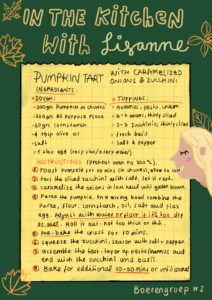 IN THE KITCHEN
WITH Lisanne
PUMPKIN TART WITH CARAMELIZED
ONIONS & ZUCCHINI
INGREDIENTS:
DOUGH: TOPPINGS:
300gr PUMPKIN IN CHUNKS hummus, pesto, cream
250gr ALL PURPOSE FLOUR 6-7 onions, thinly sliced
60gr cornstarch 2-3 zucchinis, thinly sliced
4 tbsp olive oil fresh basil
salt salt & pepper
INSTRUCTIONS (preheat oven to 200°C)
1 Roast pumpkin for 20 mins (in chunks), allow to cool
2 toss the sliced zucchini with salt, let it rest
3 caramelize the onions in low heat until golden brown
4 Puree the pumpkin. In a mixing bowl combine the
puree, flour, cornstarch, oil, salt and flax
egg. Adjust with water or flour if it's too dry
or wet. Roll it out: not too thick or thin.
5 Pre-bake the crust for 10 mins.
6 squeeze the zucchini, season with salt + pepper
7 assemble the tart: layer w/ pesto/hummus and
end with the zucchini and basil.
8 Bake for additional 20-30 mins or until cooked
Boerengroep #2